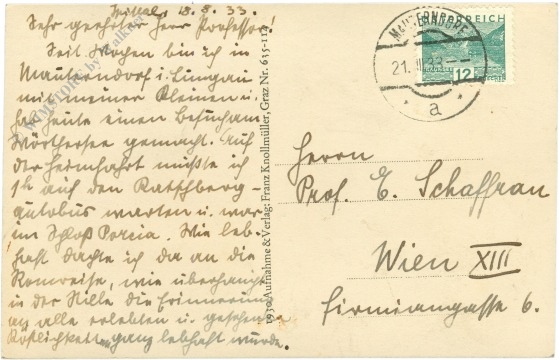 Spittal, 18.8.33.
Sehr geehrter Herr Professor!
Seit Wochen bin ich in
Mauterndorf i. Lungau
mit meiner Kleinen u.
hab heute einen Besuch am
Wörthersee gemacht. Auf
der Heimfahrt mußte ich
1h auf den Katschberg-
autobus warten u. war
im Schloß Porcia. Wie leb-
haft dachte ich da an die
Romreise, wie überhaupt
in der Stille die Erinnerung
an alle erlebten u. gesehenen
Köstlichkeiten ganz lebhaft wurde.
1930 Aufnahme & Verlag: Franz Knollmüller, Graz Nr. 635-112
MAUTERNDORF
21. 33
a
ÖSTERREICH
12
Herrn
Prof. E. Schaffran
Wien XIII
Firmiangasse 6.